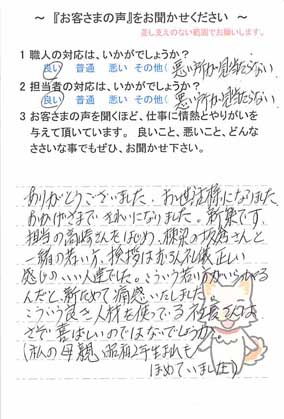 ～ 『お客さまの声』をお聞かせください ～
差し支えのない範囲でお願いします。
1 職人の対応は、いかがでしょうか?
良い 普通 悪い その他( 悪い所が見当たらない
2 担当者の対応は、いかがでしょうか?
良い 普通 悪い その他( 悪い所が見当たらない
3 お客さまの声を聞くほど、仕事に情熱とやりがいを
与えて頂いています。 良いこと、悪いこと、どんな
ささいな事でもぜひ、お聞かせ下さい。
ありがとうございました。お世話様になりました
おかげさまできれいになりました。新築です。
担当の高崎さんをはじめ、さんと
一緒の若い方、挨拶は礼儀正しい
感じのいい人達でした。こういう若い方がいるんだと
改めて痛感いたしました。
こういう良き人材を使っている社長さんは
さぞ喜ばしいのではないでしょうか。
(私の母親、昭和2年生まれも
ほめていました)